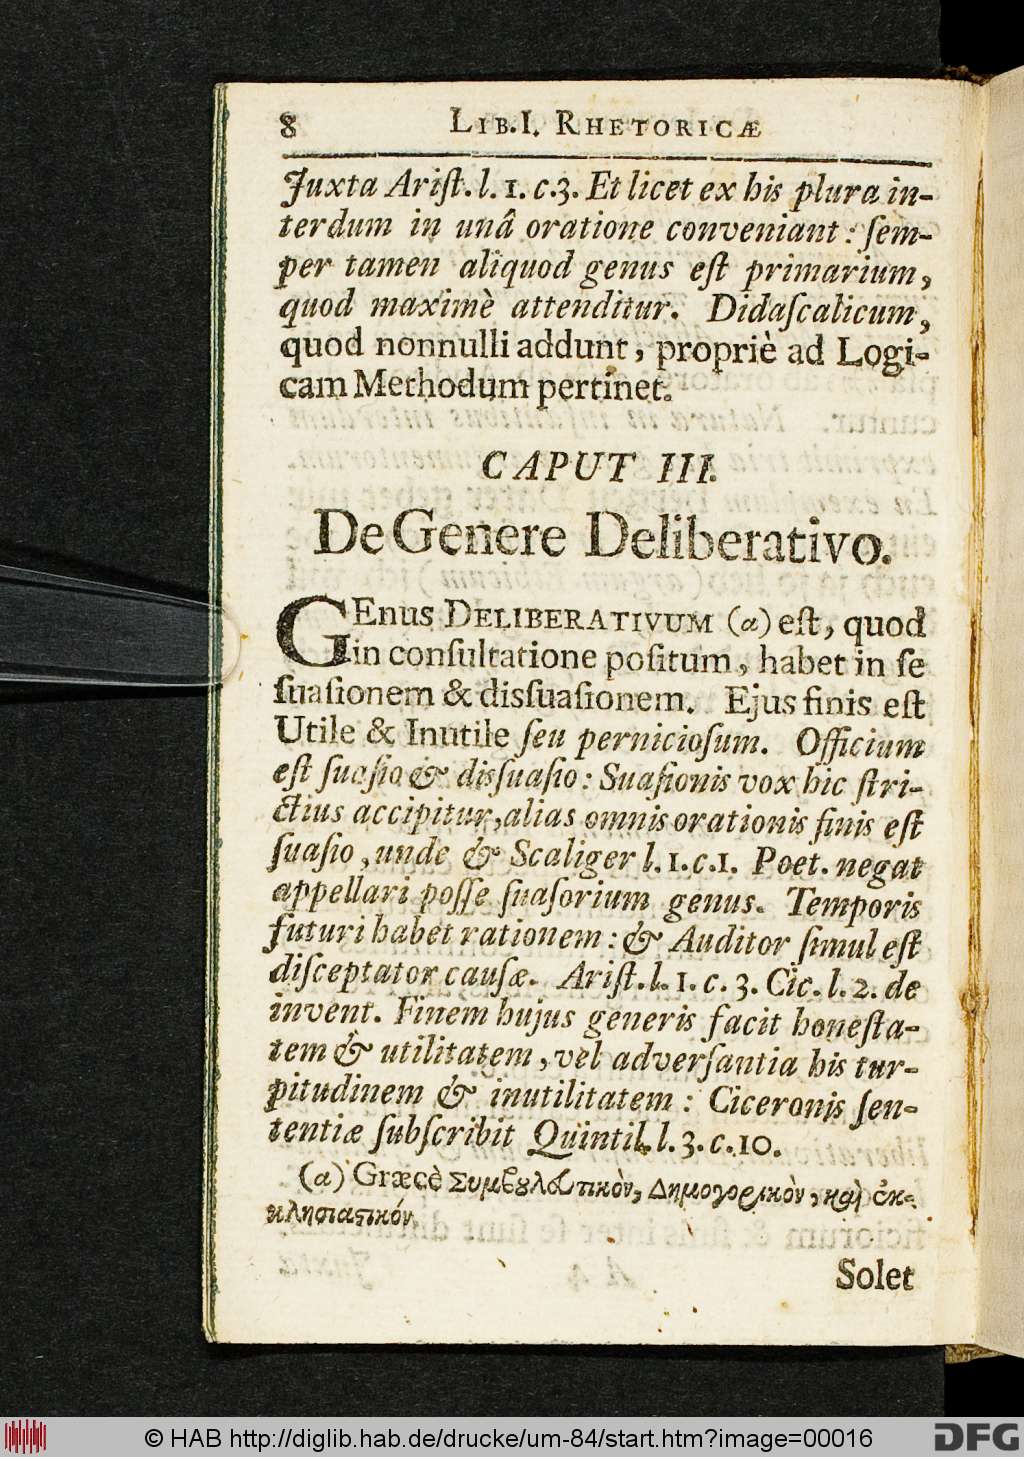 8 LIB. I. RHETORICÆ
Juxta Ariſt. l. 1. c. 3. Et licet ex his plura in-
terdum in unâ oratione conveniant: ſem-
per tamen aliquod genus eſt primarium,
quod maximè attenditur. Didaſcalicum,
quod nonnulli addunt, propriè ad Logi-
cam Methodum pertinet.
CAPUT III.
De Genere Deliberativo.
GEnus DELIBERATIVUM (a) eſt, quod
in conſultatione poſitum, habet in ſe
ſuaſionem & disſuaſionem. Ejus finis eſt
Utile & Inutile ſeu pernicioſum. Officium
eſt ſuaſio & disſuaſio: Suaſionis vox hic ſtri-
ctius accipitur, alias omnis orationis finis eſt
ſuaſio, unde & Scaliger l. 1. c. 1. Poet. negat
appellari poſſe ſuaſorium genus. Temporis
futuri habet rationem: & Auditor ſimul eſt
diſceptator cauſæ. Ariſt. l. 1. c. 3. Cic. l. 2. de
invent. Finem hujus generis facit honeſta-
tem & utilitatem, vel adverſantia his tur-
pitudinem & inutilitatem: Ciceronis ſen-
tentiæ ſubſcribit Quintil. l. 3. c. 10.
(a) Græcè Συμβουλευτικὸν, Δημογορικὸν, καὶ ἐκ-
κλησιαστικόν.
Solet
© HAB http://diglib.hab.de/drucke/um-84/start.htm?image=00016
DFG